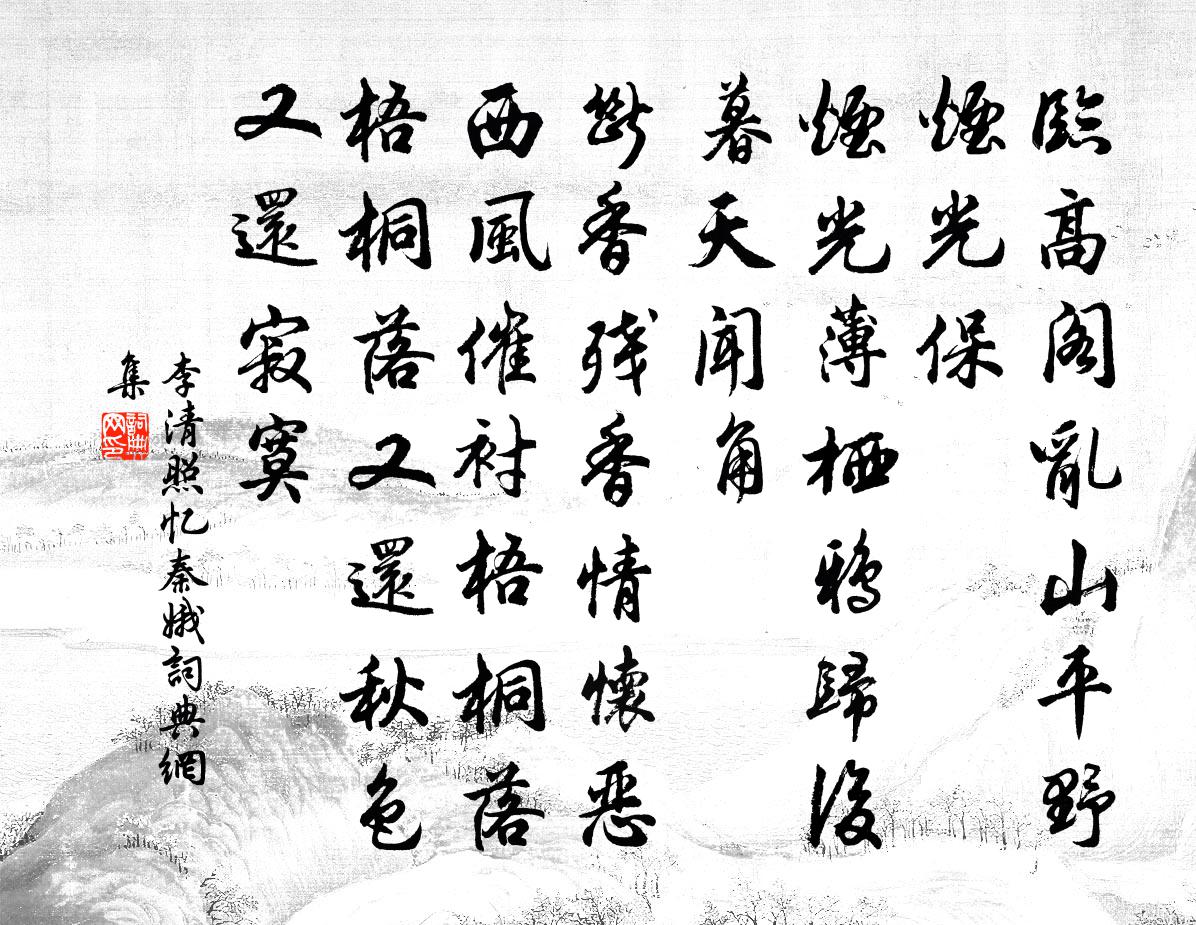 臨高閣亂山平野
煙光保
煙光薄栖鴉歸後
暮天聞角
斷香残香情懷恶
西風催衬梧桐落
梧桐落又還秋色
又還寂寞
李清照忆秦娥詞典網
集
詞典网印